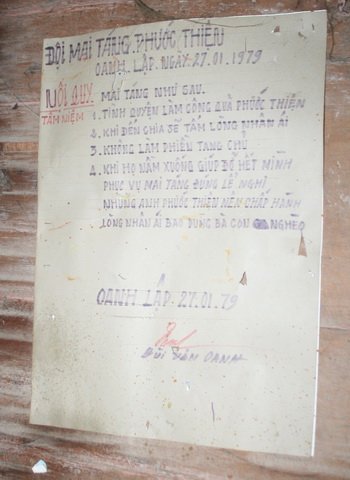 ĐỘI MAI TÁNG PHƯỚC THIỆN
OANH LẬP NGÀY 27.01.1979
NỘI QUY MAI TÁNG NHƯ SAU.
TÂM NIỆM 1. TÌNH QUYỆN LÀM CÔNG QUẢ PHƯỚC THIỆN
2. KHI ĐẾN CHIA SẼ TẤM LÒNG NHÂN ÁI
3. KHÔNG LÀM PHIỀN TANG CHỦ
4. KHI HỌ NẰM XUỐNG GIÚP ĐỞ HẾT MÌNH
PHỤC VỤ MAI TÁNG ĐÚNG LỄ NGHĨ
NHỮNG ANH PHƯỚC THIỆN NÊN CHẤP HÀNH
LÒNG NHÂN ÁI BAO DUNG BÀ CON NGHÈO
OANH LẬP 27.01.79
BÙI VĂN OANH